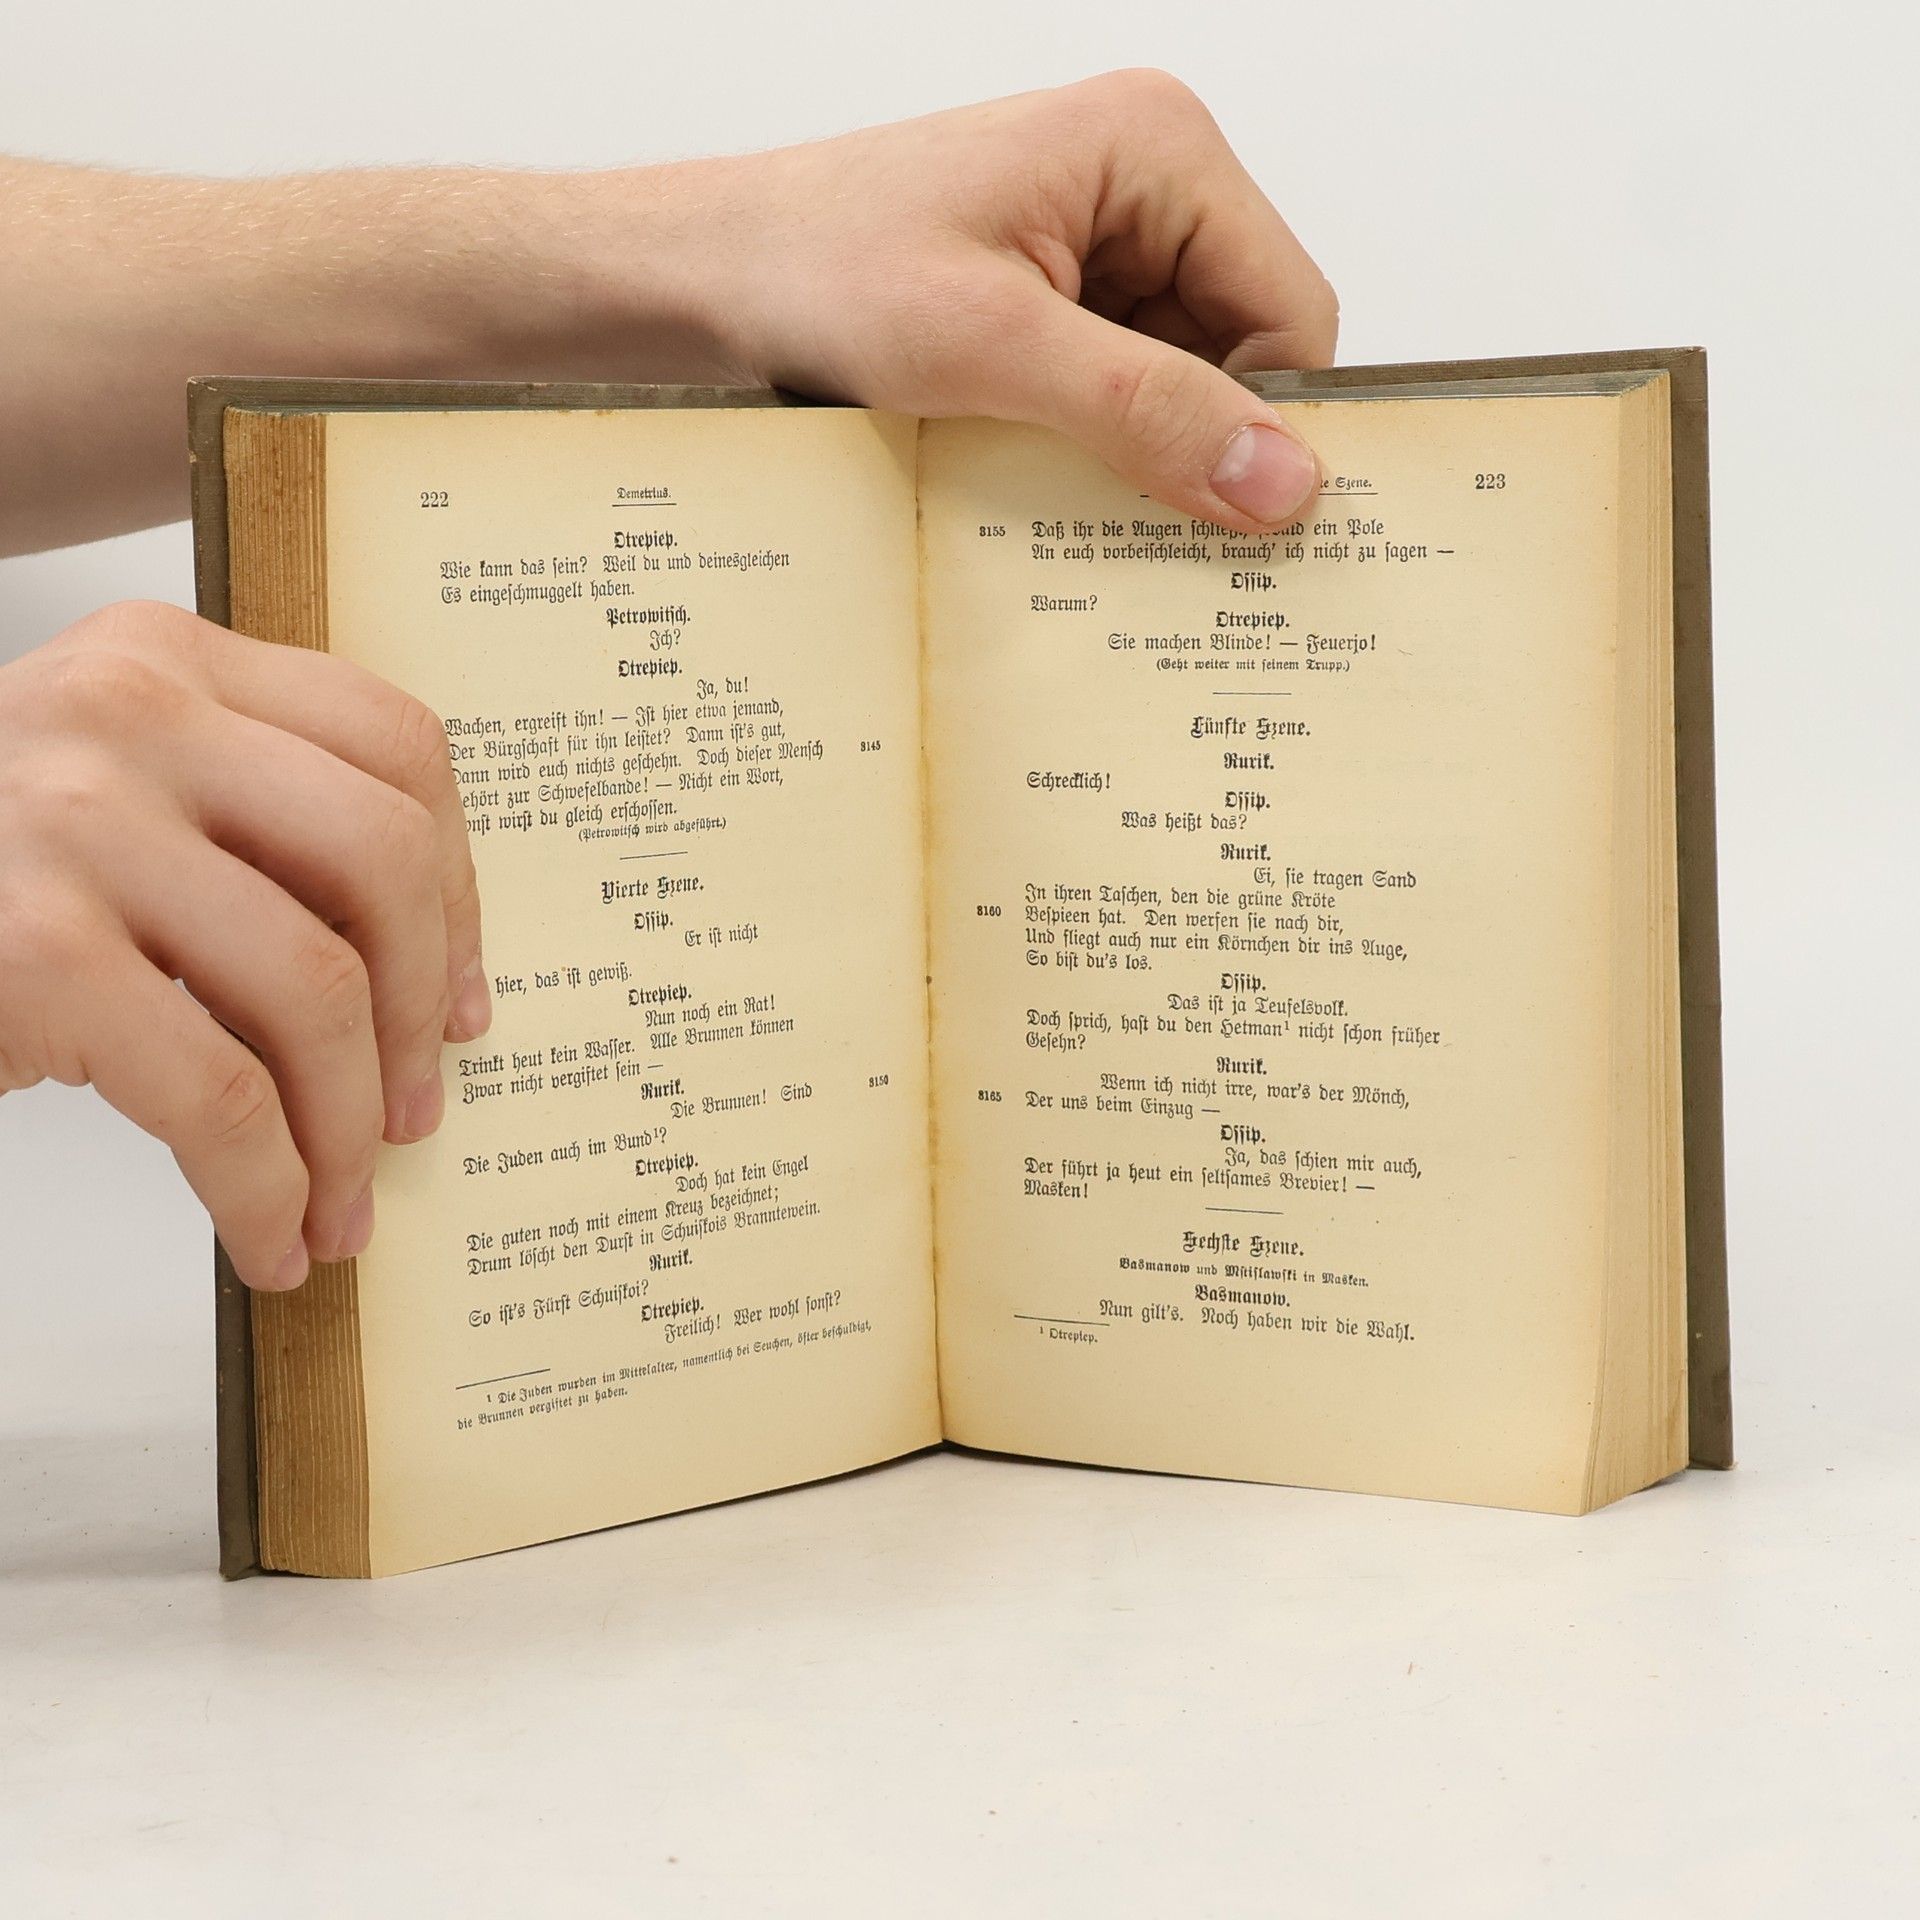 222
Demetrius.
Otrepiep.
Wie kann das sein? Weil du und deinesgleichen
Es eingeschmuggelt haben.
Petrowitsch.
Ich?
Otrepiep.
Ja, du!
Wachen, ergreift ihn! — Ist hier etwa jemand,
Der Bürgschaft für ihn leistet? Dann ist's gut,
Dann wird euch nichts geschehn. Doch dieser Mensch 3145
ehört zur Schwefelbande! — Nicht ein Wort,
onst wirst du gleich erschossen.
(Petrowitsch wird abgeführt.)
Vierte Szene.
Ossip.
Er ist nicht
hier, das ist gewiß.
Otrepiep.
Nun noch ein Rat!
Trinkt heut kein Wasser. Alle Brunnen können
Zwar nicht vergiftet sein —
Rurik.
Die Brunnen! Sind 3150
Die Juden auch im Bund¹?
Otrepiep.
Doch hat kein Engel
Die guten noch mit einem Kreuz bezeichnet;
Drum löscht den Durst in Schuiskois Branntewein.
Rurik.
So ist's Fürst Schuiskoi?
Otrepiep.
Freilich! Wer wohl sonst?
¹ Die Juden wurden im Mittelalter, namentlich bei Seuchen, öfter beschuldigt,
die Brunnen vergiftet zu haben.
te Szene.
223
3155 Daß ihr die Augen schließt, ein Pole
An euch vorbeischleicht, brauch' ich nicht zu sagen —
Ossip.
Warum?
Otrepiep.
Sie machen Blinde! — Feuerjo!
(Geht weiter mit seinem Trupp.)
Fünfte Szene.
Rurik.
Schrecklich!
Ossip.
Was heißt das?
Rurik.
Ei, sie tragen Sand
In ihren Taschen, den die grüne Kröte
3160 Bespieen hat. Den werfen sie nach dir,
Und fliegt auch nur ein Körnchen dir ins Auge,
So bist du's los.
Ossip.
Das ist ja Teufelsvolk.
Doch sprich, hast du den Hetman¹ nicht schon früher
Gesehn?
Rurik.
Wenn ich nicht irre, war's der Mönch,
3165 Der uns beim Einzug —
Ossip.
Ja, das schien mir auch,
Der führt ja heut ein seltsames Brevier! —
Masken!
Sechste Szene.
Basmanow und Mstislawski in Masken.
Basmanow.
Nun gilt's. Noch haben wir die Wahl.
¹ Otrepiep.